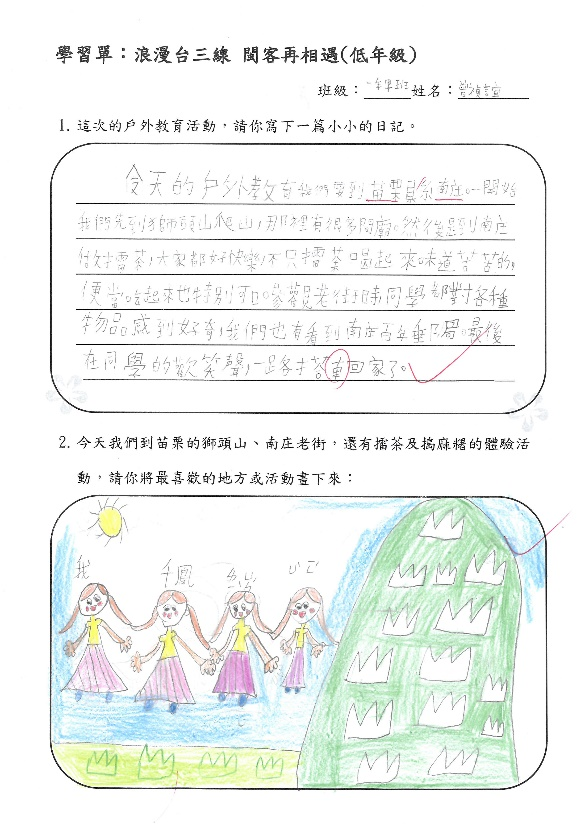 學習單：浪漫台三線 閩客再相遇(低年級)
班級：一年早班姓名：
1. 這次的戶外教育活動，請你寫下一篇小小的日記。
今天的戶外教育我們要到苗栗縣南庄。一開始
我們先到獅頭山爬山，那裡有很多間廟。然後到南庄
做擂茶，大家都好快樂，不只擂茶喝起來味道苦苦的，
便當吃起來也特別可口。參觀老街時同學都對各種
物品感到好奇，我們也有看到南庄百年郵局。最後
在同學的歡笑聲，一起搭車回家了。
2. 今天我們到苗栗的獅頭山、南庄老街，還有擂茶及搗麻糬的體驗活
動，請你將最喜歡的地方或活動畫下來：
我 千鳳